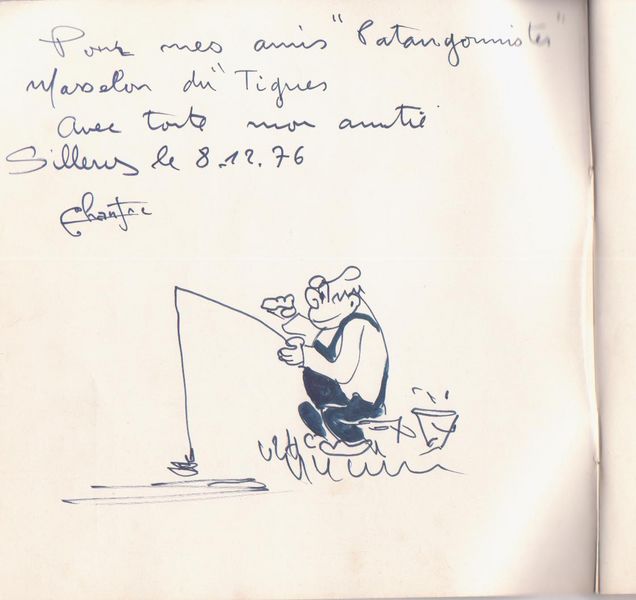 Pour mes amis "Patangonnistes"
Marselon du "Tigues
Avec toute mon amitié
Sillery le 8.12.76
Chantre